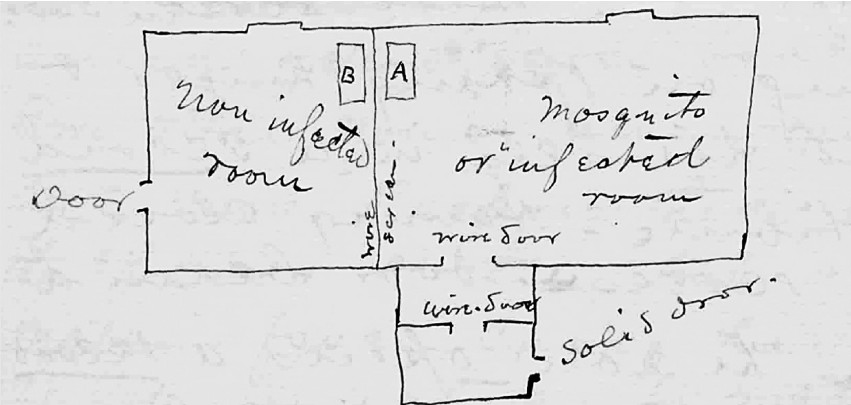 B
A
Non infected
room
Door
wire
screen.
Mosquito
or "infected
room
wire door
wire door
Solid door.